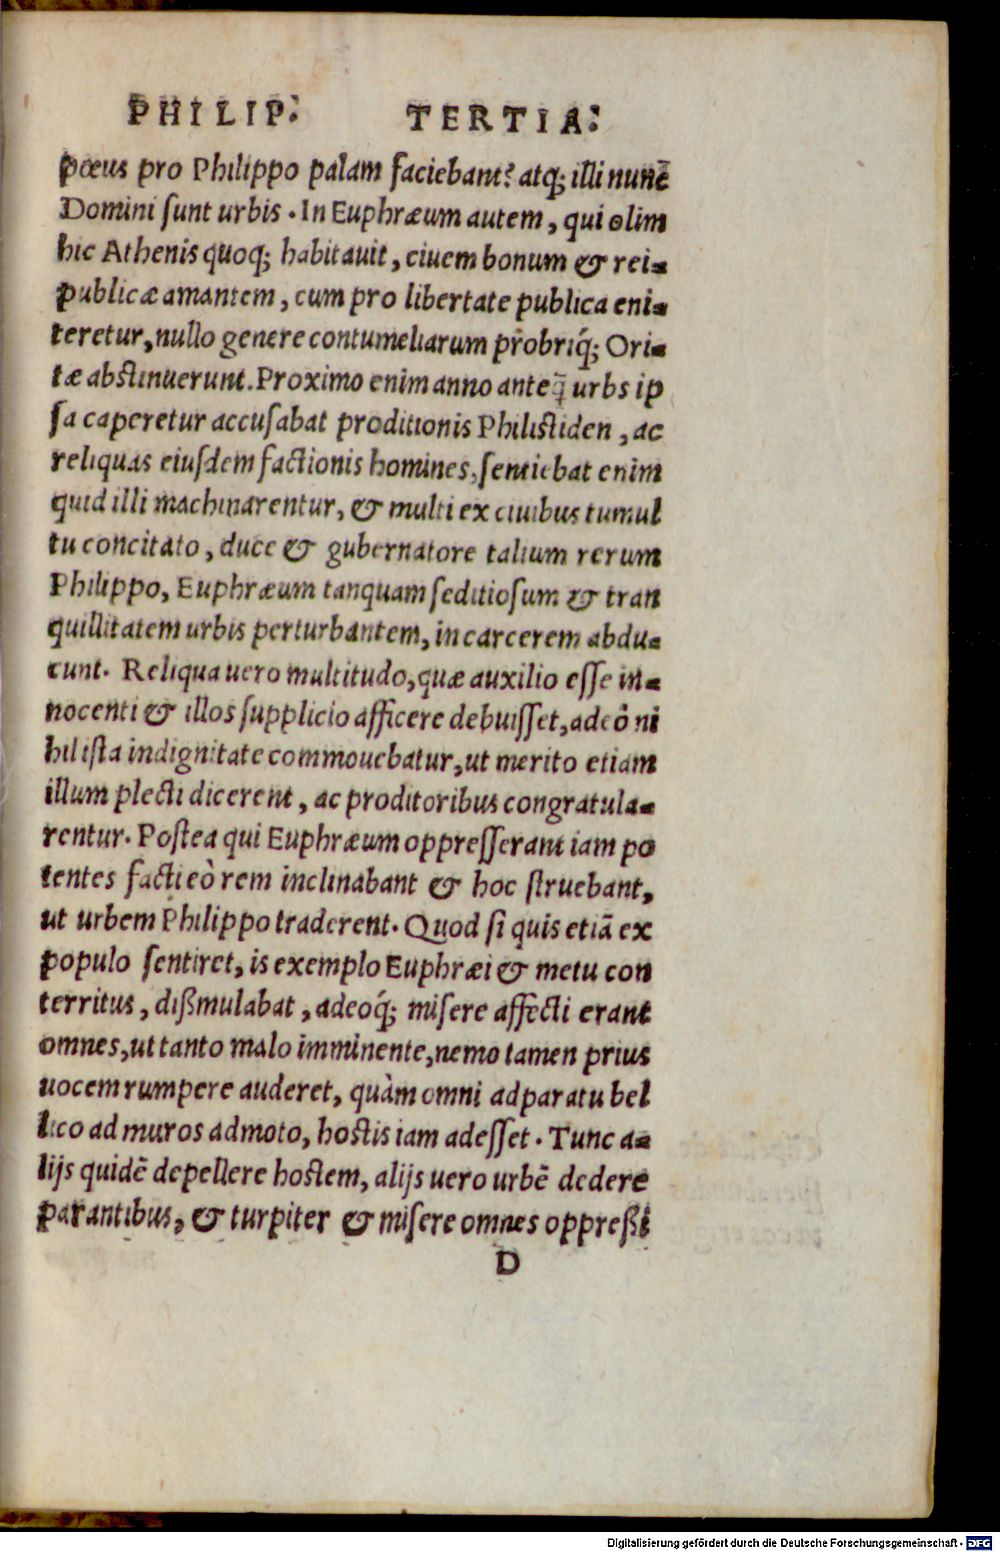 PHILIP. TERTIA.
pœus pro Philippo palam faciebant? atq; illi nunc
Domini sunt urbis. In Euphræum autem, qui olim
hic Athenis quoq; habitauit, ciuem bonum & rei-
publicæ amantem, cum pro libertate publica eni-
teretur, nullo genere contumeliarum probriq́; Ori-
tæ abstinuerunt. Proximo enim anno anteq̄ urbs ip
sa caperetur accusabat proditionis Philistiden, ac
reliquas eiusdem factionis homines, sentiebat enim
quid illi machinarentur, & multi ex ciuibus tumul
tu concitato, duce & gubernatore talium rerum
Philippo, Euphræum tanquam seditiosum & tran
quillitatem urbis perturbantem, in carcerem abdu-
cunt. Reliqua uero multitudo, quæ auxilio esse in-
nocenti & illos supplicio afficere debuisset, adeò ni
hil ista indignitate commouebatur, ut merito etiam
illum plecti dicerent, ac proditoribus congratula-
rentur. Postea qui Euphræum oppresserant iam po
tentes facti eò rem inclinabant & hoc struebant,
ut urbem Philippo traderent. Quod si quis etiā ex
populo sentiret, is exemplo Euphræi & metu con
territus, dißimulabat, adeoq́; misere affecti erant
omnes, ut tanto malo imminente, nemo tamen prius
uocem rumpere auderet, quàm omni adparatu bel
lico ad muros admoto, hostis iam adesset. Tunc a-
lijs quidē depellere hostem, alijs uero urbē dedere
parantibus, & turpiter & misere omnes oppreßi
D
Digitalisierung gefördert durch die Deutsche Forschungsgemeinschaft - DFG